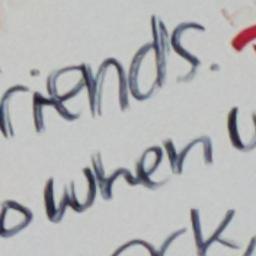 riends.
o when u
ork